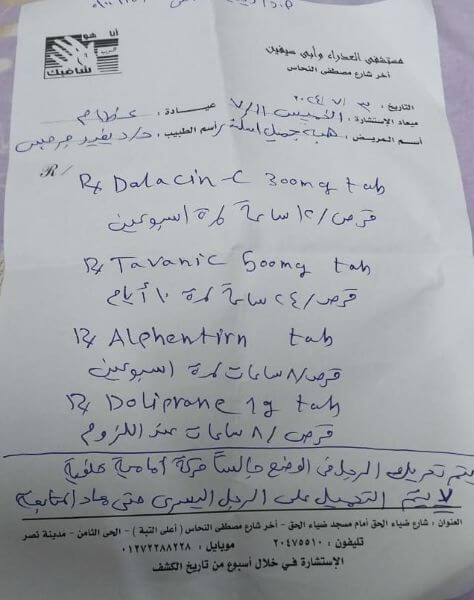 أنا هو
الرب
شافيك
مستشفى العذراء وأبى سيفين
آخر شارع مصطفى النحاس
التاريخ : ٣ / ٧ / ٢٠٢٤
ميعاد الإستشارة : الخميس ١١ / ٧ عيادة : عظام
أسم المريض : هبه جميل أسم الطبيب : د /
R /
R Dalacin-C 300mg tab
قرص / ١٢ ساعة لمدة اسبوعين
R Tavanic 500mg tab
قرص / ٢٤ ساعة لمدة ١٠ أيام
R Alphentirn tab
قرص / ٨ ساعات لمدة اسبوعين
R Doliprane 1g tab
قرص / ٨ ساعات عند اللزوم
يتم تحريك الرجل فى الوضع جالساً حركة أمامية خلفية
لا يتم التحميل على الرجل اليسرى حتى ميعاد المتابعة
العنوان : شارع ضياء الحق أمام مسجد ضياء الحق - آخر شارع مصطفى النحاس ( أعلى التبة ) - الحى الثامن - مدينة نصر
تليفون : ٢٠٤٧٥٥١٠ موبايل : ٠١٢٧٢٢٨٨٢٢٨
الإستشارة فى خلال أسبوع من تاريخ الكشف